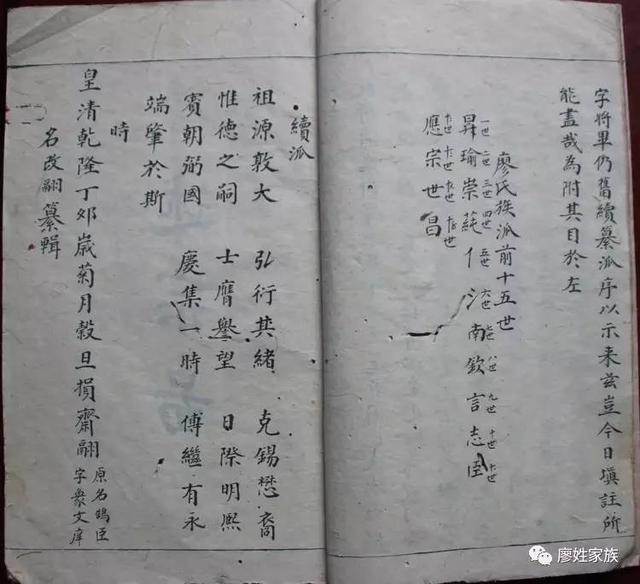 字將畢仍舊續纂派序以示来茲豈今日塡註所
能盡哉為附其目於左
廖氏族派前十五世
一世 二世 三世 四世 五世 六世 七世 八世 九世 十世 十一世
昇瑜崇蒓仁 南欽言志臣
應宗世昌
續派
祖源敦大 弘衍其緒 克錫懋裔
惟德之嗣 士膺譽望 日際明熈
賓朝弼國 慶集一時 傅繼有永
端肇於斯
時
皇清乾隆丁夘嵗菊月榖旦損齋翮 原名鳴臣
字衆文庠
名改翮纂輯
廖姓家族